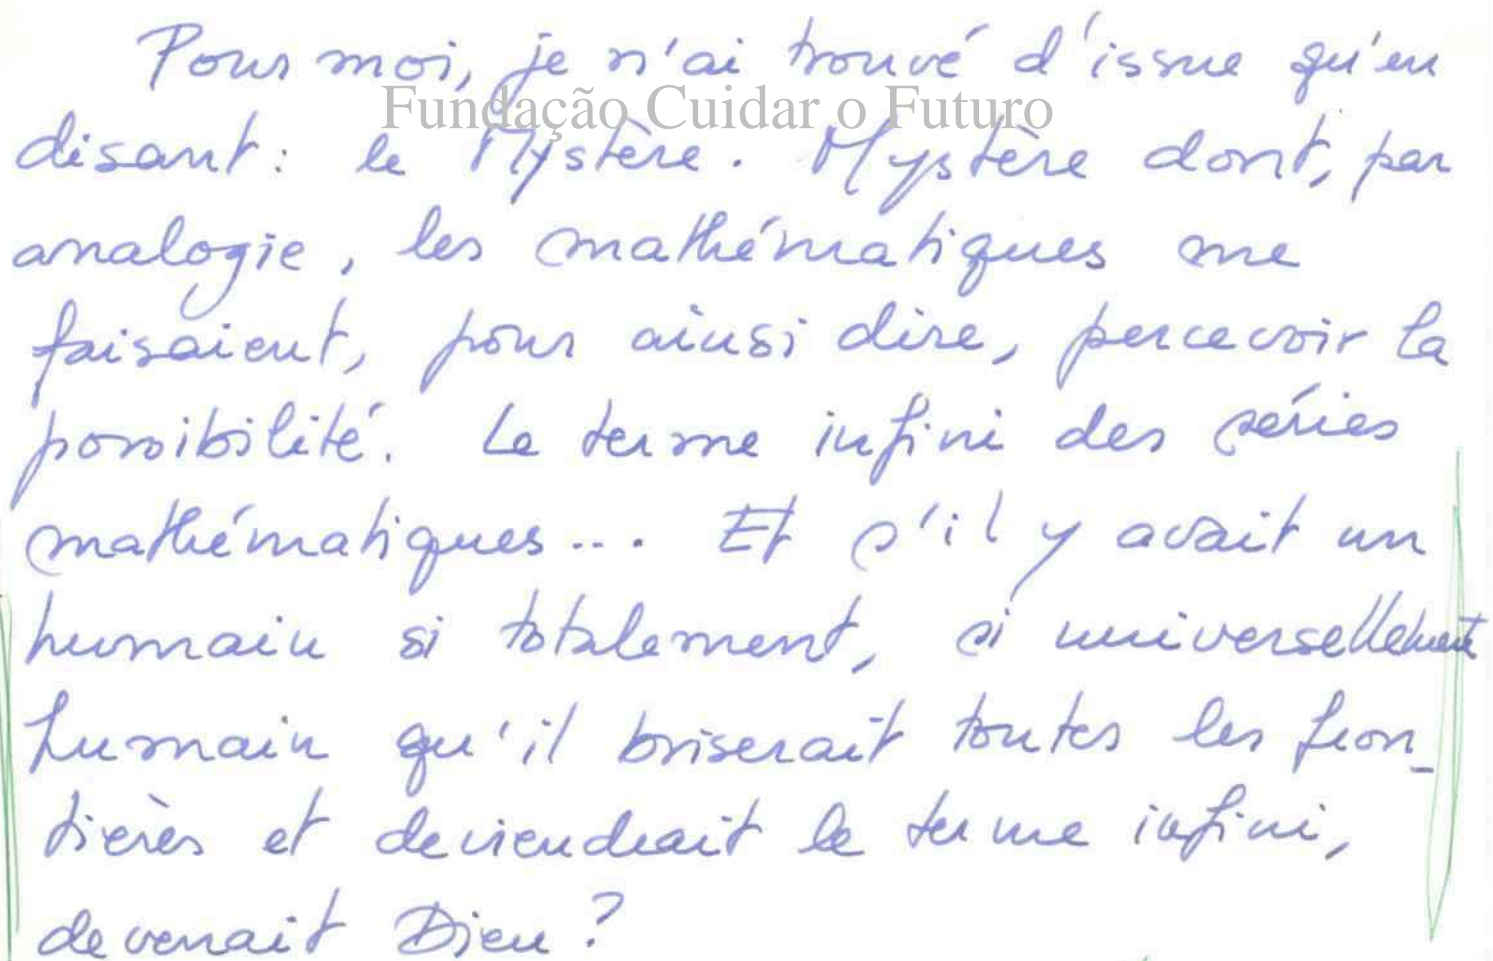 Pour moi, je n'ai trouvé d'issue qu'en
Fundação Cuidar o Futuro
disant: le Mystère. Mystère dont, par
analogie, les mathématiques me
faisaient, pour ainsi dire, percevoir la
possibilité. Le terme infini des séries
mathématiques... Et s'il y avait un
humain si totalement, si universellement
humain qu'il briserait toutes les fron_
tières et deviendrait le terme infini,
devenait Dieu?